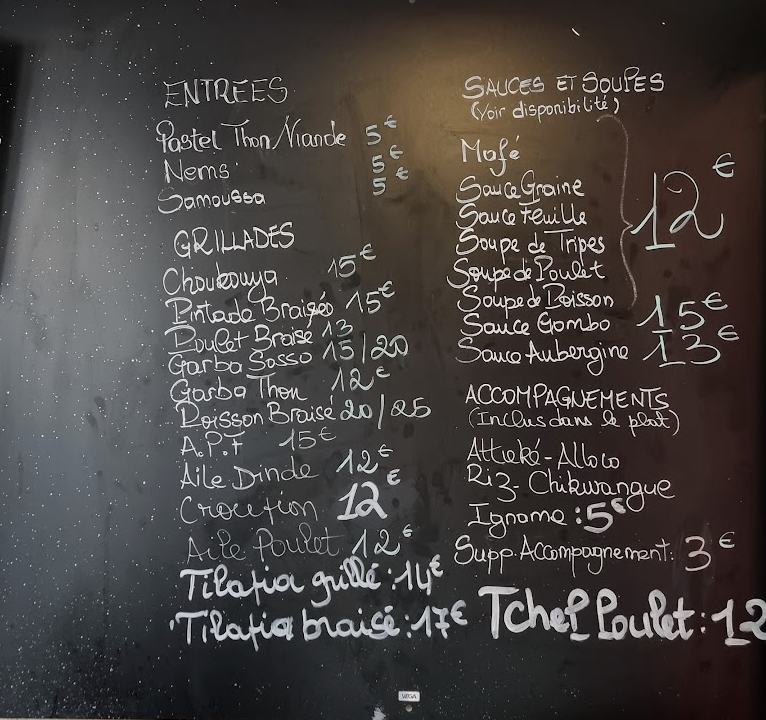 ENTREES
Pastel Thon/Viande 5€
Nems 5€
Samoussa 5€
GRILLADES
Choukouya 15€
Pintade Braisée 15€
Poulet Braisé 13
Garba Sosso 15/20
Garba Thon 12€
Poisson Braisé 20/25
A.P.F 15€
Aile Dinde 12€
Croupion 12€
Aile Poulet 12€
Tilapia grillé : 14€
Tilapia braisé : 17€
SAUCES ET SOUPES
(Voir disponibilité)
Mafé
Sauce Graine
Sauce Feuille
Soupe de Tripes
Soupe de Poulet
Soupe de Poisson
12€
Sauce Gombo 15€
Sauce Aubergine 13€
ACCOMPAGNEMENTS
(Inclus dans le plat)
Attieké - Alloco
Riz - Chikwangue
Igname : 5€
Supp. Accompagnement: 3€
Tchep Poulet : 12